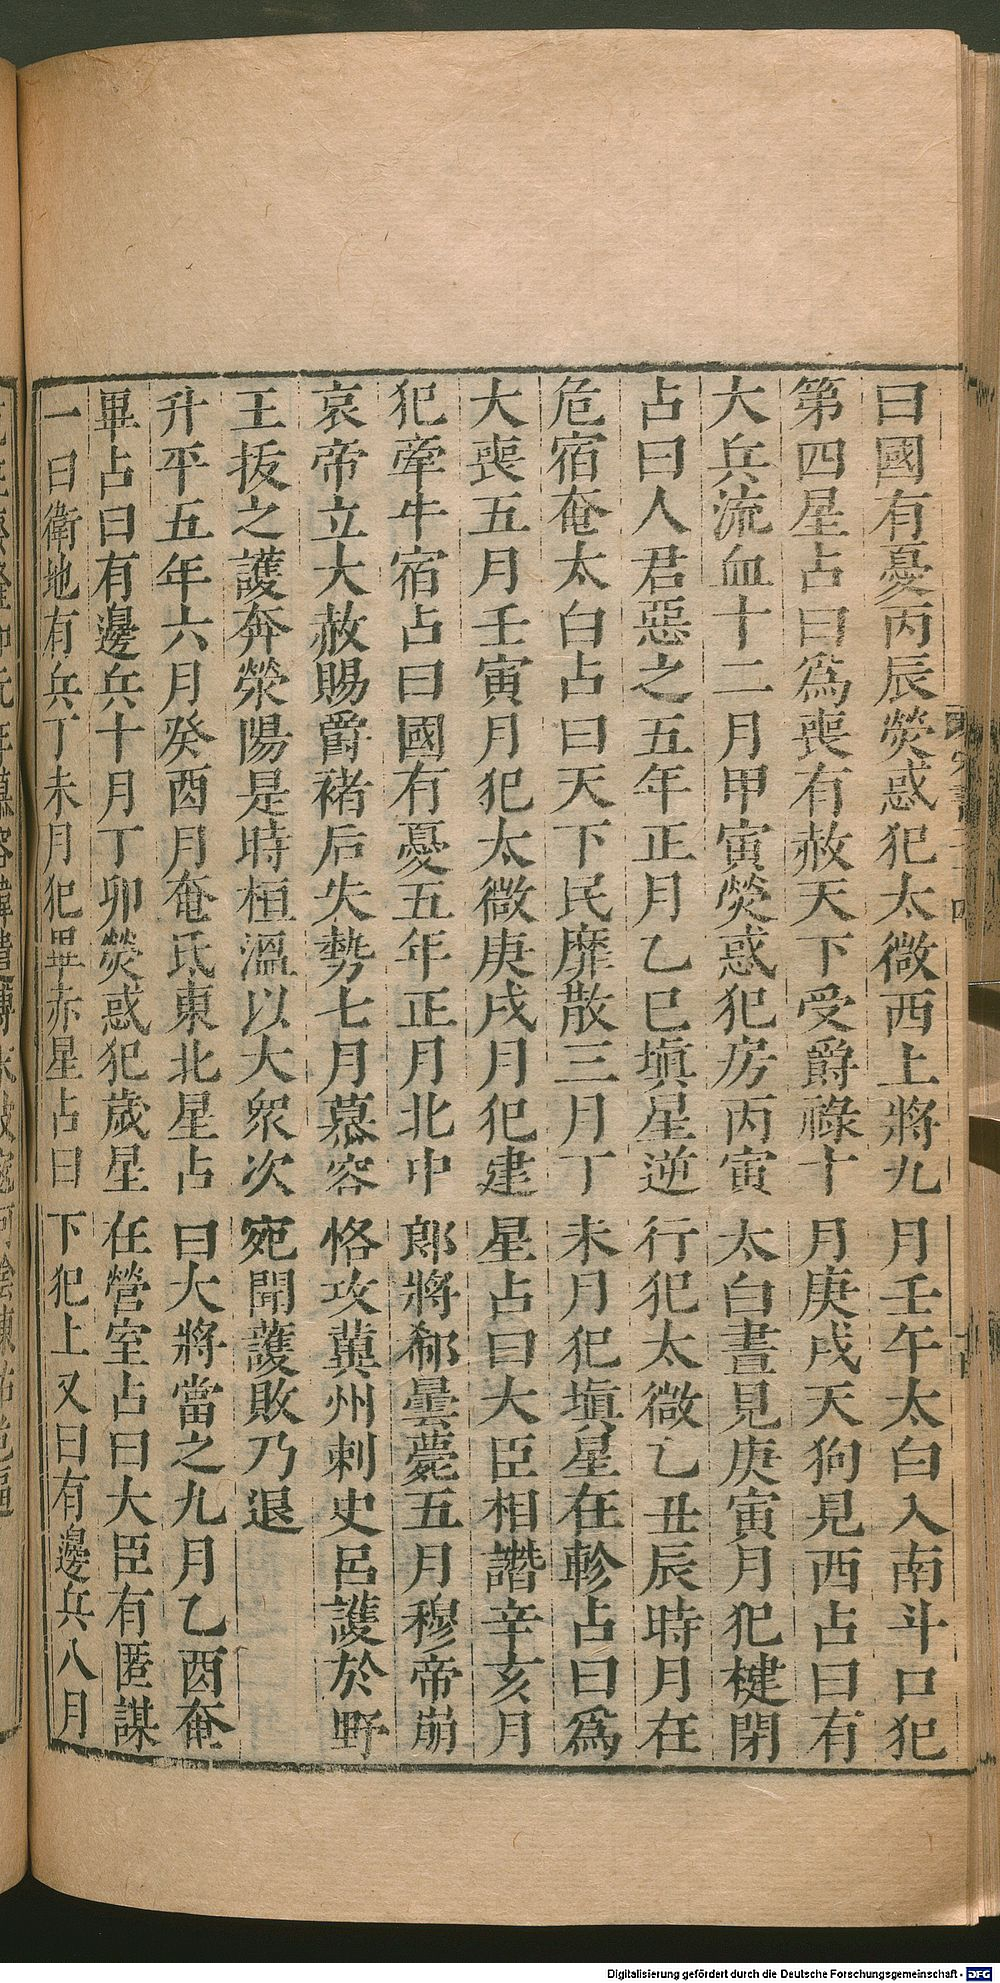 曰國有憂丙辰熒惑犯太微西上將九月壬午太白入南斗口犯
第四星占曰爲喪有赦天下受爵祿十月庚戌天狗見西占曰有
大兵流血十二月甲寅熒惑犯房丙寅太白晝見庚寅月犯楗閉
占曰人君惡之五年正月乙巳塡星逆行犯太微乙丑辰時月在
危宿奄太白占曰天下民靡散三月丁未月犯塡星在軫占曰爲
大喪五月壬寅月犯太微庚戌月犯建星占曰大臣相譖辛亥月
犯牽牛宿占曰國有憂五年正月北中郎將郗曇薨五月穆帝崩
哀帝立大赦賜爵褚后失勢七月慕容恪攻冀州刺史呂護於野
王拔之護奔滎陽是時桓溫以大衆次宛聞護敗乃退
升平五年六月癸酉月奄氐東北星占曰大將當之九月乙酉奄
畢占曰有邊兵十月丁卯熒惑犯歲星在營室占曰大臣有匿謀
一曰衛地有兵丁未月犯畢赤星占曰下犯上又曰有邊兵八月
Digitalisierung gefördert durch die Deutsche Forschungsgemeinschaft - DFG